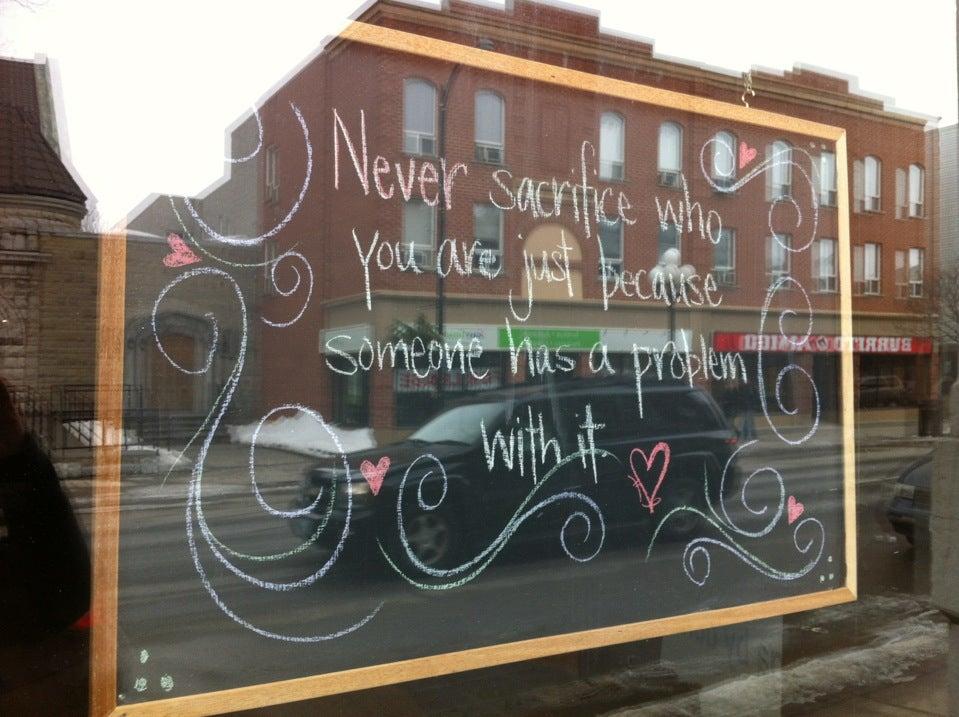 Never sacrifice who
you are just because
someone has a problem
with it
BURRITO AMIGO